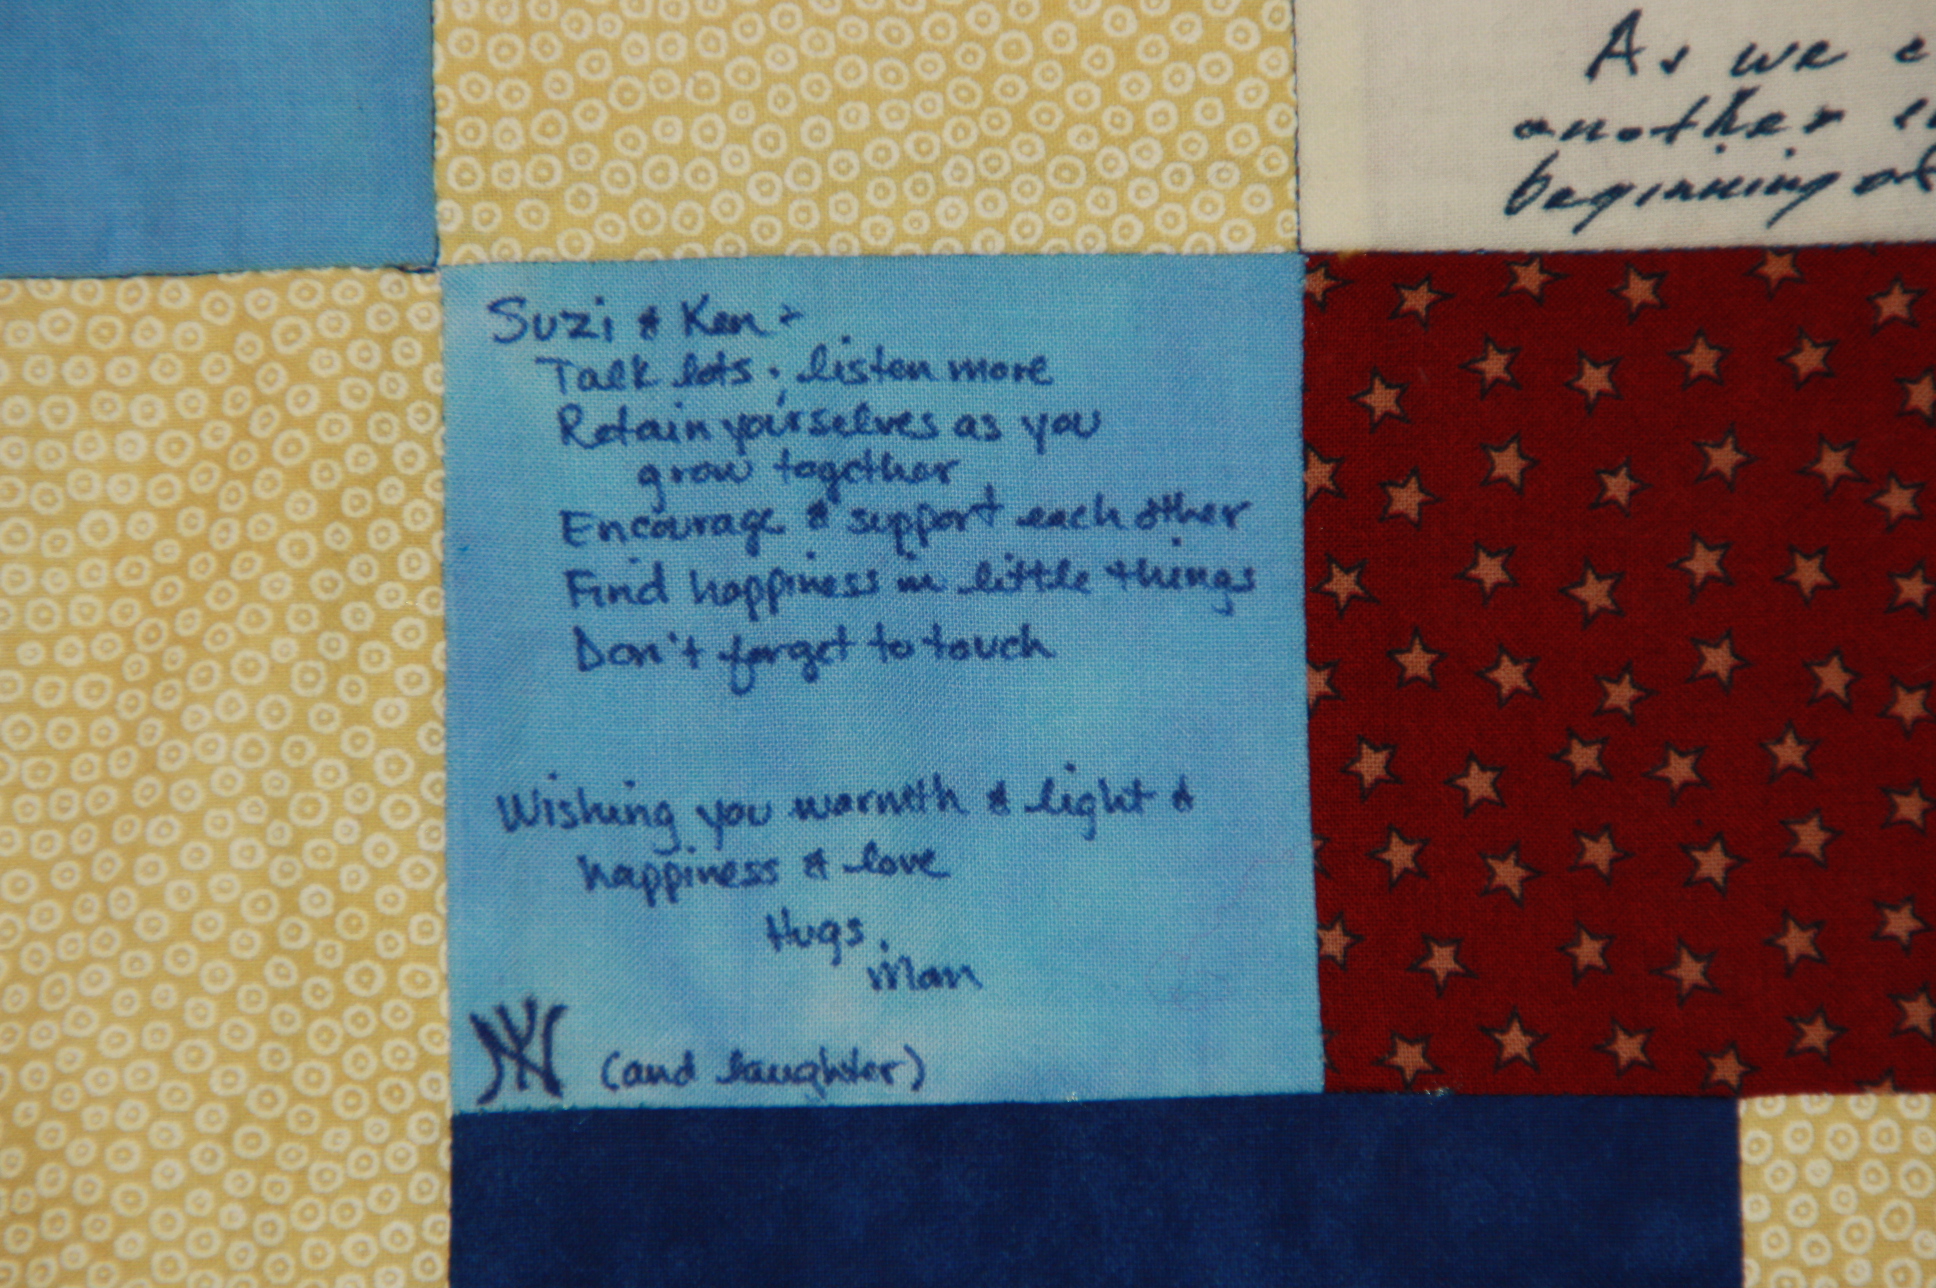 As we
another
beginning of
Suzi & Ken -
Talk lots; listen more
Retain yourselves as you
grow together
Encourage & support each other
Find happiness in little things
Don't forget to touch
Wishing you warmth & light &
happiness & love
Hugs,
(and laughter)